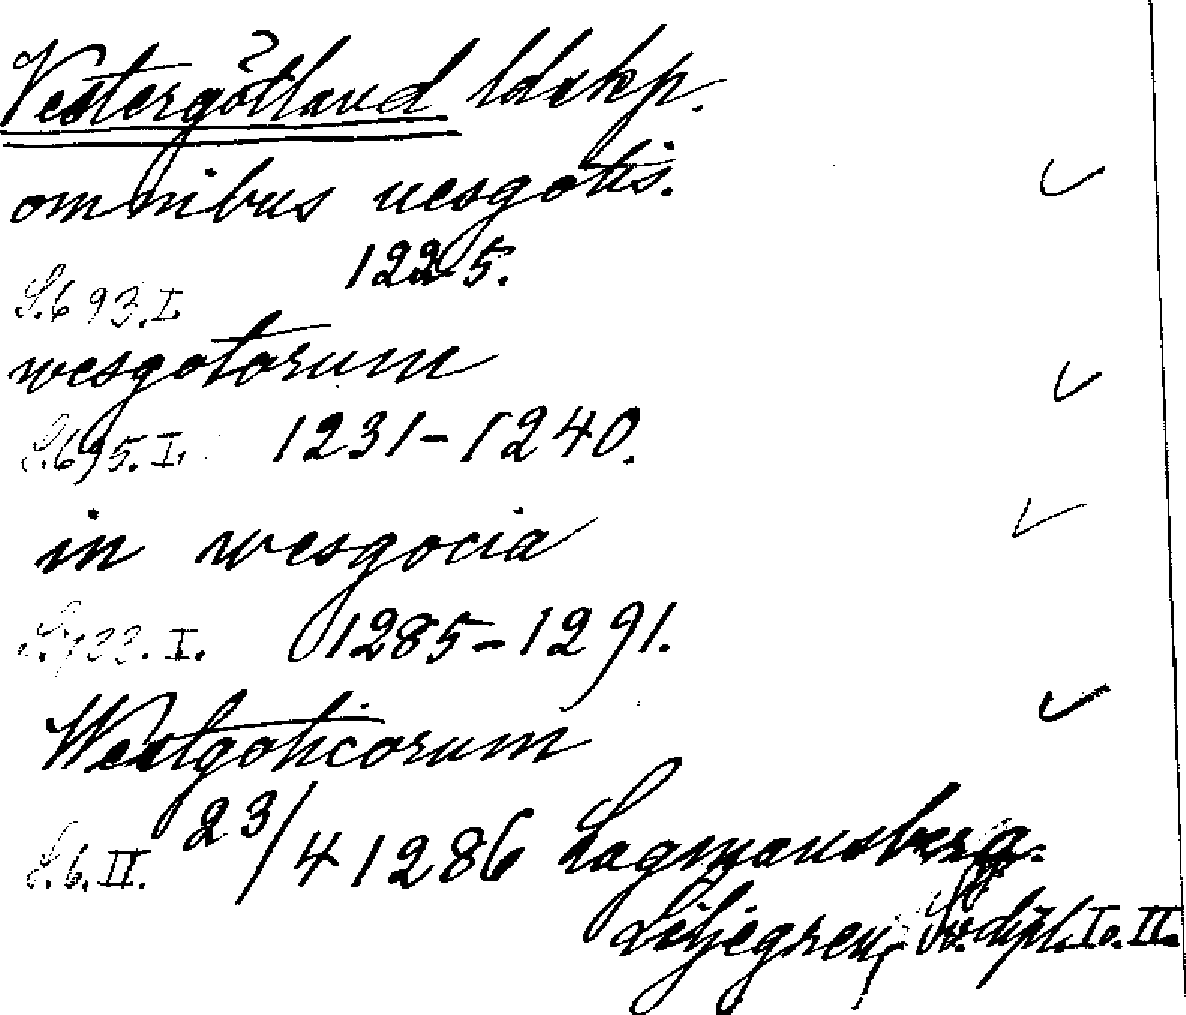 Vestergötland ldskp.
omnibus uesgotis.
1225.
S. 693. I.
wesgotorum
S. 695. I. 1231-1240.
in wesgocia
S. 722. I. 1285-1291.
Westgoticorum
S. 6. II. 23/4 1286 Lagmansberga.
Liljegren, Sv. dipl. I o. II.